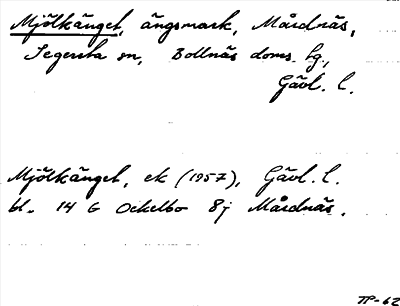 Mjölkänget, ängsmark, Mårdnäs,
Segersta sn, Bollnäs doms. hg.,
Gävl. l.
Mjölkänget, ek (1957), Gävl. l.
bl. 14 G Ockelbo 8j Mårdnäs.
TP-62